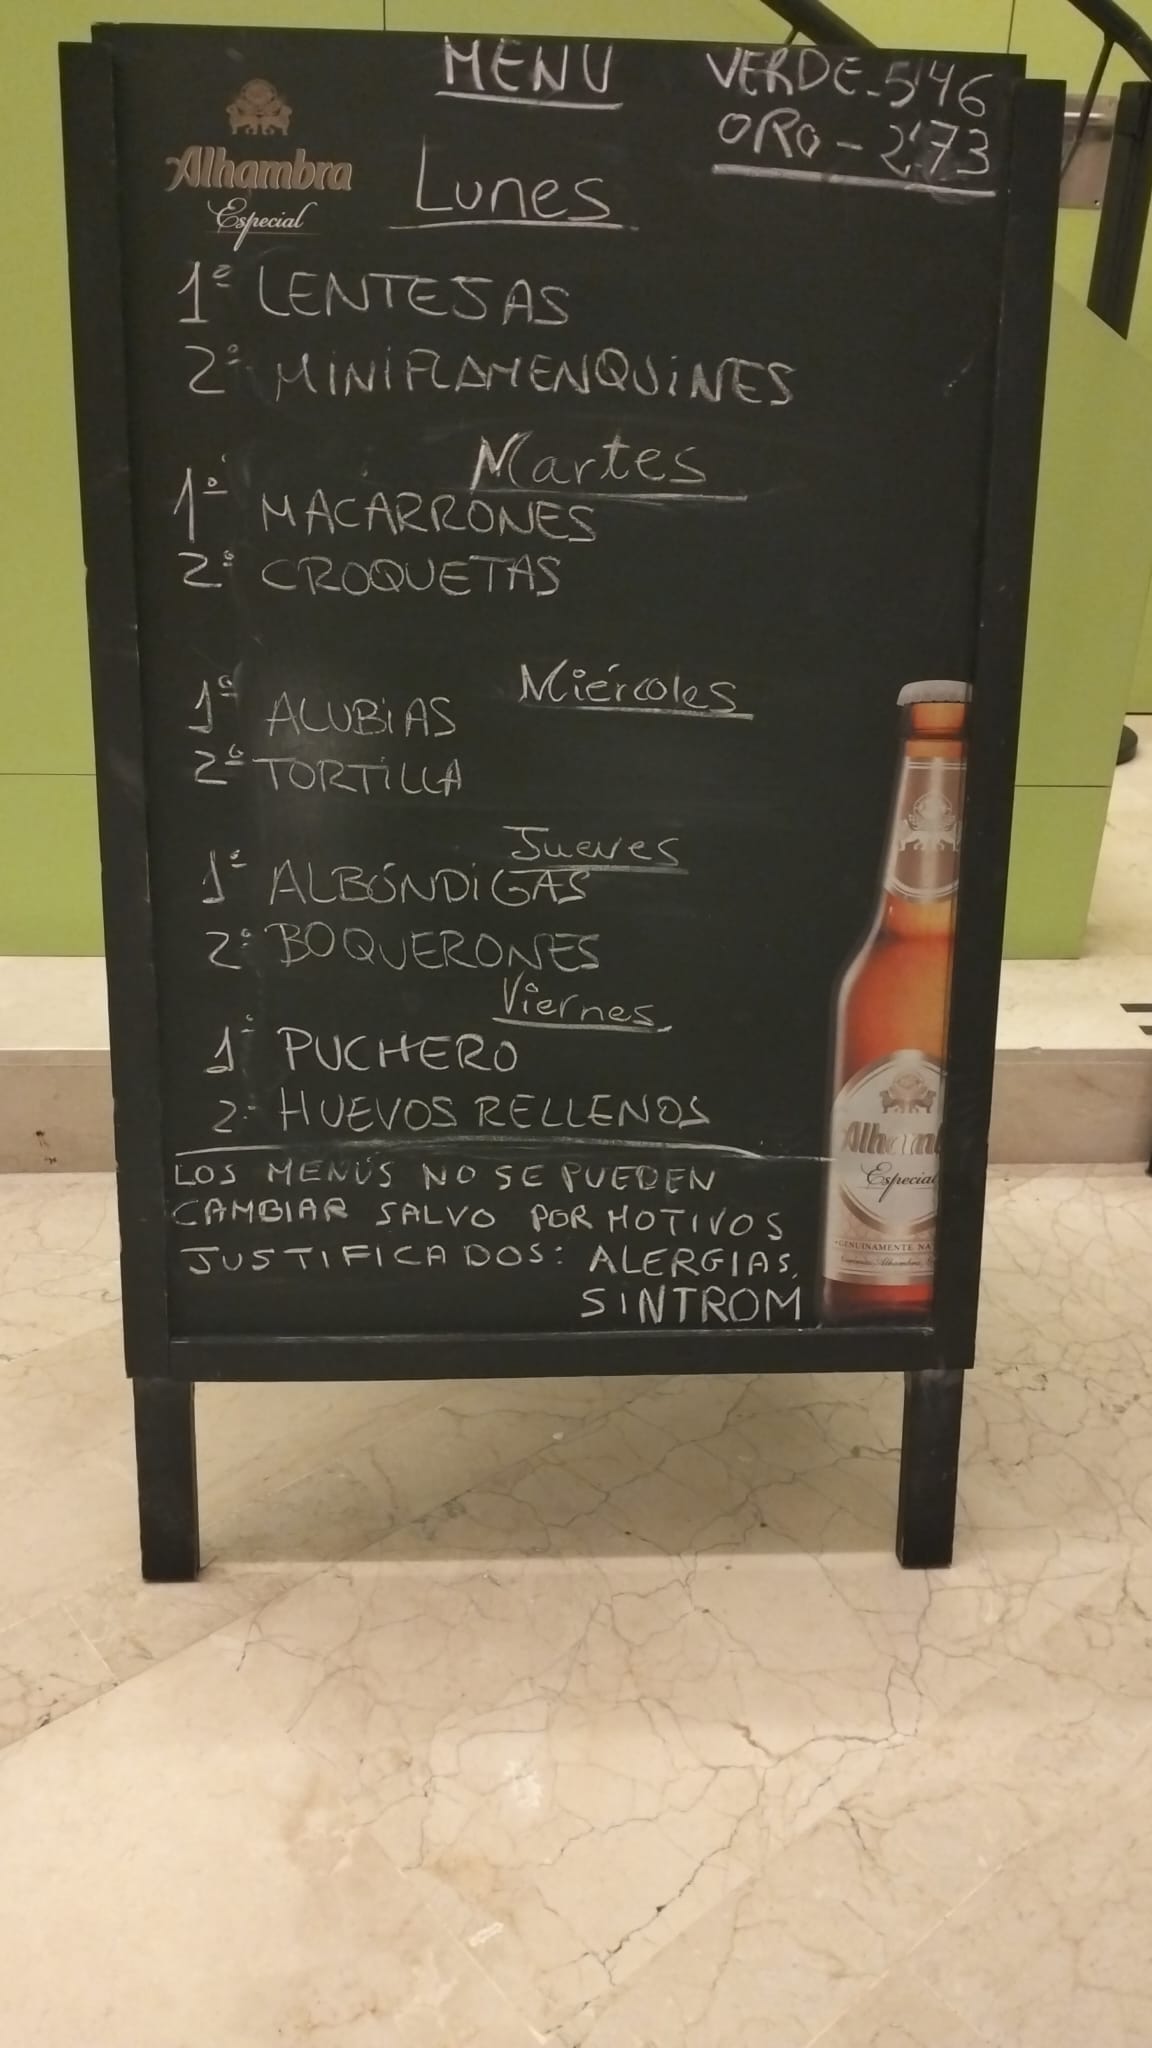 MENU
VERDE-5'46
ORO-2'73
Alhambra
Especial
Lunes
1º LENTEJAS
2º MINIFLAMENQUINES
Martes
1º MACARRONES
2º CROQUETAS
Miércoles
1º ALUBIAS
2º TORTILLA
Jueves
1º ALBÓNDIGAS
2º BOQUERONES
Viernes
1º PUCHERO
2º HUEVOS RELLENOS
LOS MENÚS NO SE PUEDEN
CAMBIAR SALVO POR MOTIVOS
JUSTIFICADOS: ALERGIAS,
SINTROM
Alhamb
Especial
GENUINAMENTE NA